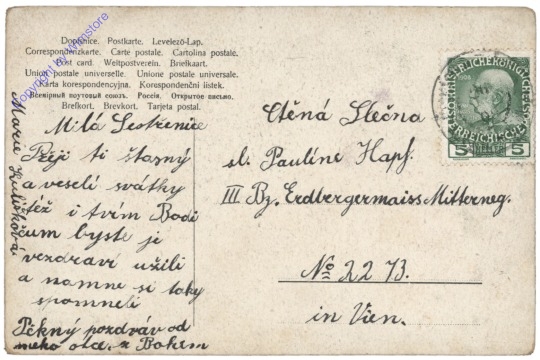 Dopisnice. Postkarte. Levelező-Lap.
Correspondenzkarte. Carte postale. Cartolina postale.
Post card. Weltpostverein. Briefkaart.
Union postale universelle. Unione postale universale.
Karta korespondencyjna. Korespondenční lístek.
Всемірный почтовый союзъ. Россія. Открытое письмо.
Brefkort. Brevkort. Tarjeta postal.
Copyright by Wnrstore
Marie
Milá Sestřenice
Přeji ti štasný
a veselí svátky
též i tvím Bodi
čum byste je
vezdraví užili
a namne si taky
spomněli
Pěkný pozdráv od
meho otce. z Bohem
Ctěná Slečna
sl. Pauline Hapf.
III Bz. Erdbergermaiss Mitterneg.
No 2273.
in Vien.
5
5